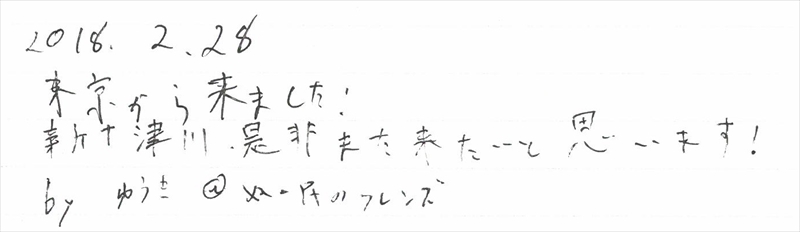 2018. 2. 28
東京から来ました!
新十津川、是非また来たいと思います!
by ゆうき @ のフレンズ